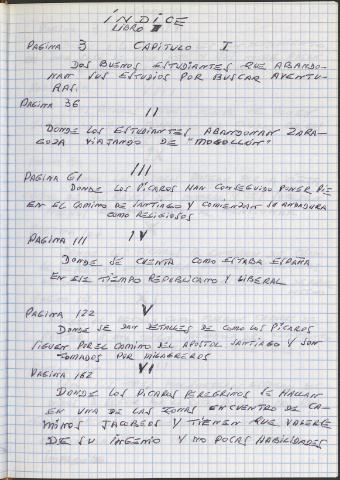 ÍNDICE
LIBRO II
PAGINA 3 CAPITULO I
DOS BUENOS ESTUDIANTES QUE ABANDO-
NAN SUS ESTUDIOS POR BUSCAR AVENTU-
RAS.
PAGINA 36
II
DONDE LOS ESTUDIANTES ABANDONAN ZARA-
GOZA VIAJANDO DE "MOGOLLÓN"
PAGINA 61 III
DONDE LOS PÍCAROS HAN CONSEGUIDO PONER PIE
EN EL CAMINO DE SANTIAGO Y COMIENZAN SU ANDADURA
COMO RELIGIOSOS
PAGINA 111 IV
DONDE SE CUENTA COMO ESTABA ESPAÑA
EN ESE TIEMPO REPUBLICANO Y LIBERAL
PAGINA 122 V
DONDE SE DAN DETALLES DE COMO LOS PÍCAROS
SIGUEN POR EL CAMINO DEL APOSTOL SANTIAGO Y SON
TOMADOS POR MILAGREROS
PAGINA 162 VI
DONDE LOS PICAROS PEREGRINOS SE HALLAN
EN UNA DE LAS ZONAS ENCUENTRO DE CA-
MINOS JACOBEOS Y TIENEN QUE VALERSE
DE SU INGENIO Y NO POCAS HABILIDADES